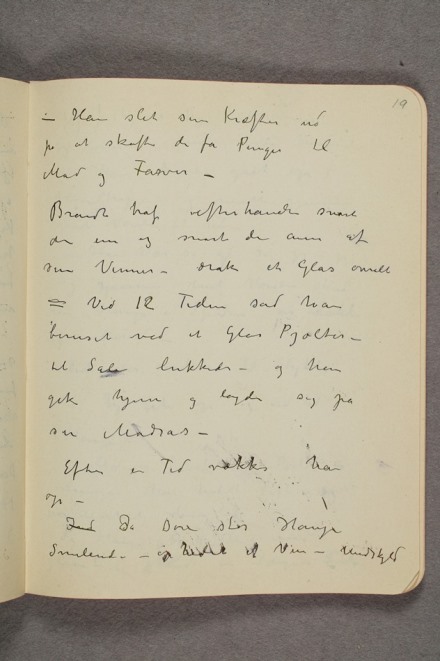 19
– Han slet sine Kræfter ud
på at skaffe de få Penge til
Mad og Farver –
Brandt traf efterhånden snart
den ene og snart den anen af
sine Venner – drak et Glas
= Ved 12 Tiden sad han
beruset ved et Glas Pjolter –
til lukkedes – og han
gik hjem og lagde sig på
sin Madras –
Efter en Tid vækkes han
op –
Da Døre
Smilende – Ven – Undskyld